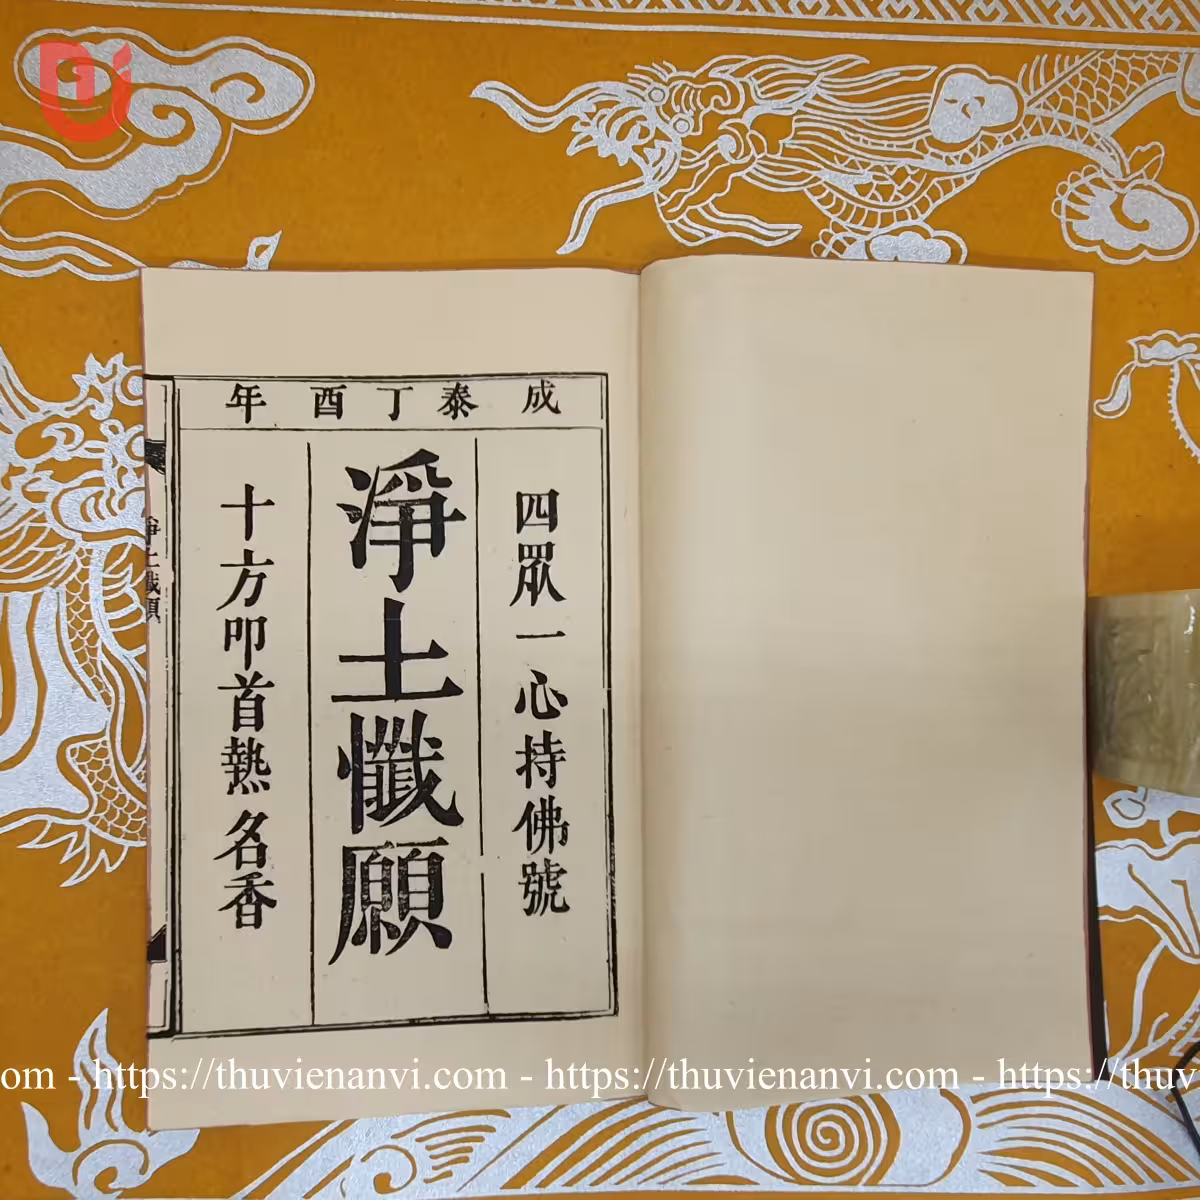 成泰丁酉年
四眾一心持佛號
淨土懺願
十方叩首熱名香
淨土懺願
com - https://thuvienanvi.com - https://thuvienanvi.com - https://thuv